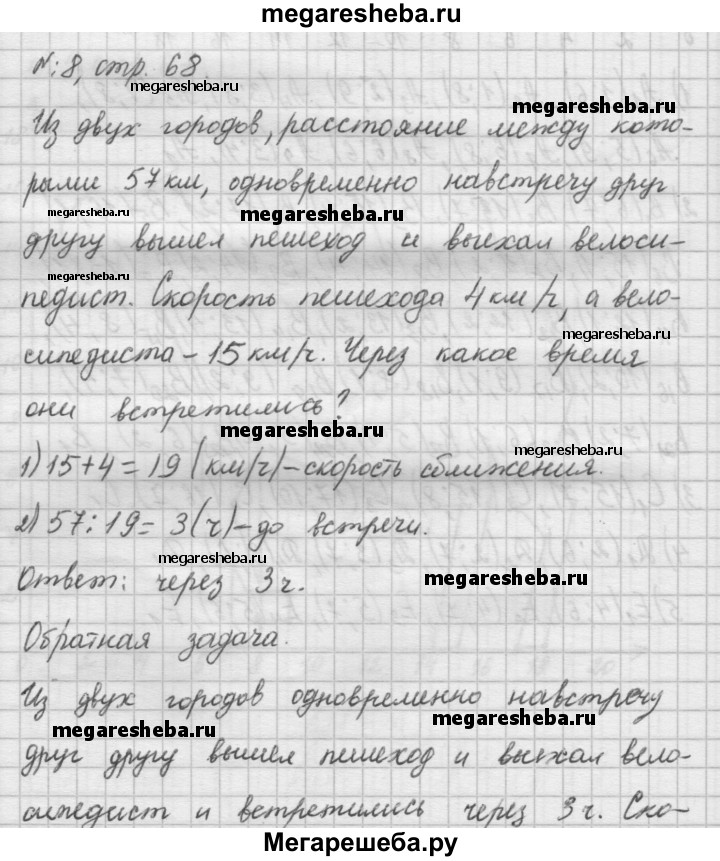 megaresheba.ru
№8, стр. 68
megaresheba.ru
megaresheba.ru
Из двух городов, расстояние между кото-
рыми 57 км, одновременно навстречу друг
megaresheba.ru
megaresheba.ru
другу вышел пешеход и выехал велоси-
megaresheba.ru
педист. Скорость пешехода 4 км/ч, а вело-
megaresheba.ru
сипедиста - 15 км/ч. Через какое время
они встретились?
megaresheba.ru
megaresheba.ru
1) 15+4=19 (км/ч) - скорость сближения.
2) 57:19=3(ч) - до встречи.
megaresheba.ru
megaresheba.ru
Ответ: через 3 ч.
Обратная задача.
Из двух городов одновременно навстречу
megaresheba.ru
megaresheba.ru
друг другу вышел пешеход и выехал вело-
сипедист и встретились через 3 ч. Ско-
Мегарешеба.ру